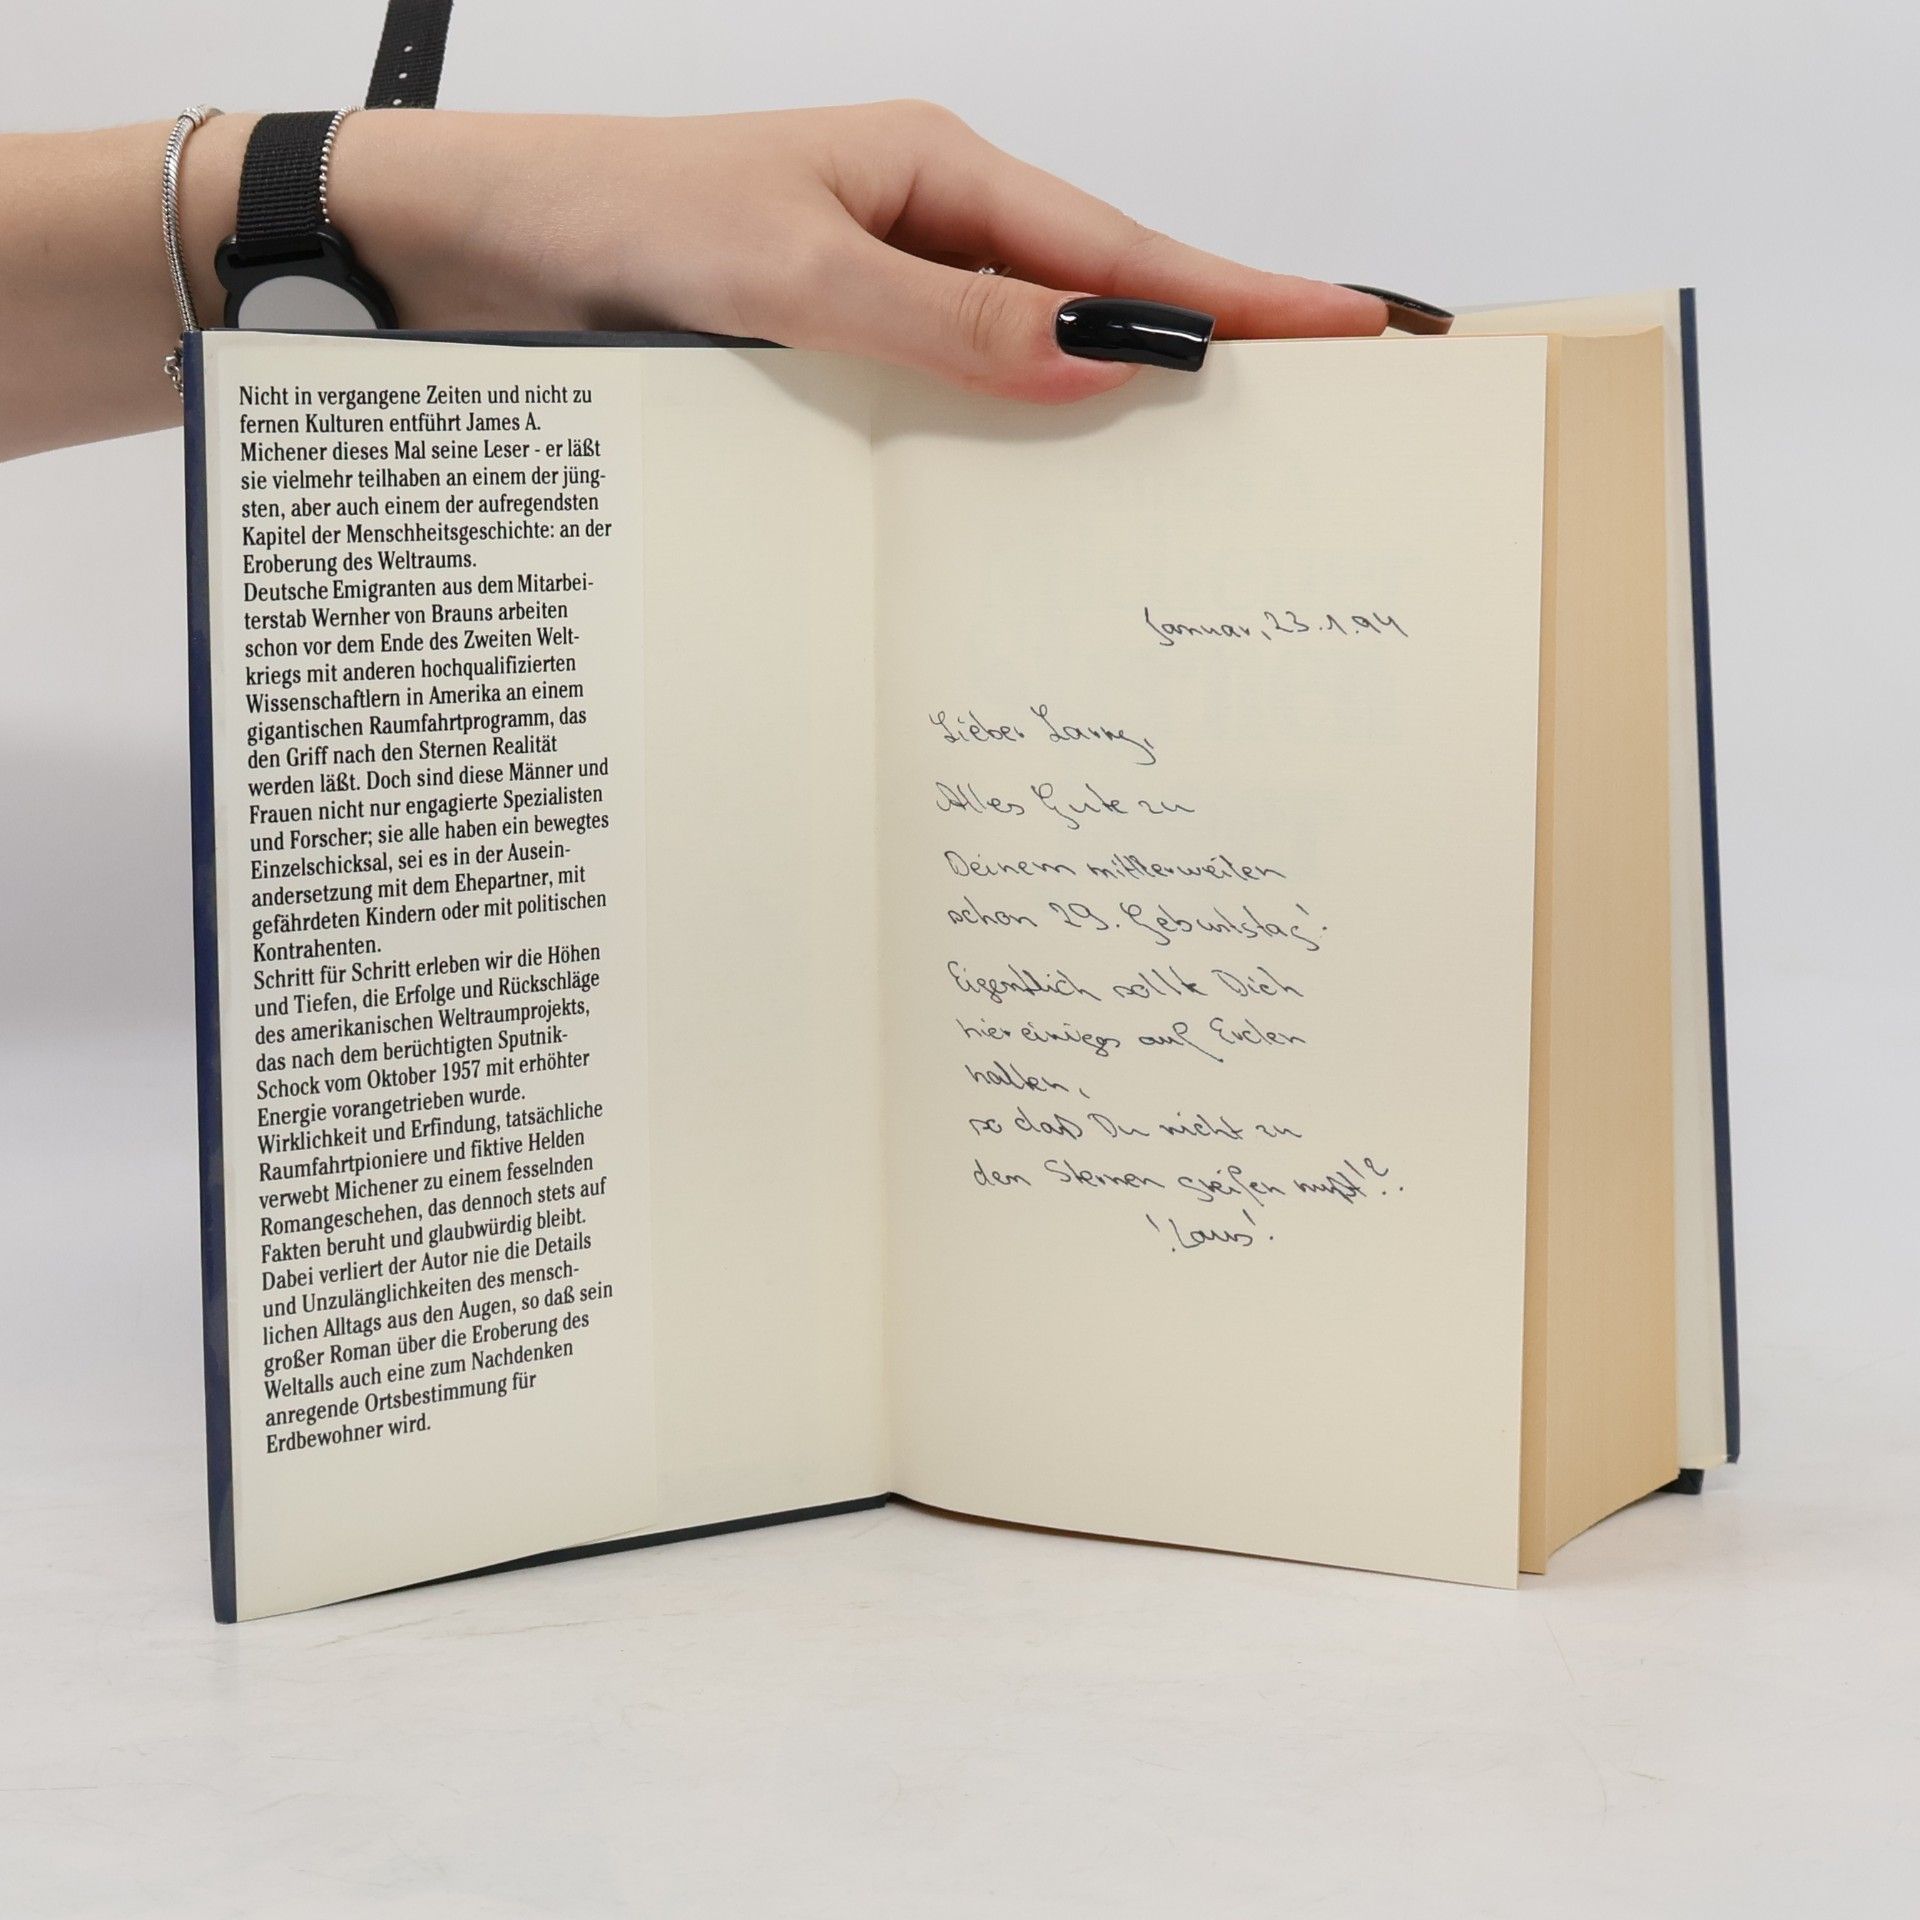 Nicht in vergangene Zeiten und nicht zu
fernen Kulturen entführt James A.
Michener dieses Mal seine Leser - er läßt
sie vielmehr teilhaben an einem der jüng-
sten, aber auch einem der aufregendsten
Kapitel der Menschheitsgeschichte: an der
Eroberung des Weltraums.
Deutsche Emigranten aus dem Mitarbei-
terstab Wernher von Brauns arbeiten
schon vor dem Ende des Zweiten Welt-
kriegs mit anderen hochqualifizierten
Wissenschaftlern in Amerika an einem
gigantischen Raumfahrtprogramm, das
den Griff nach den Sternen Realität
werden läßt. Doch sind diese Männer und
Frauen nicht nur engagierte Spezialisten
und Forscher; sie alle haben ein bewegtes
Einzelschicksal, sei es in der Ausein-
andersetzung mit dem Ehepartner, mit
gefährdeten Kindern oder mit politischen
Kontrahenten.
Schritt für Schritt erleben wir die Höhen
und Tiefen, die Erfolge und Rückschläge
des amerikanischen Weltraumprojekts,
das nach dem berüchtigten Sputnik-
Schock vom Oktober 1957 mit erhöhter
Energie vorangetrieben wurde.
Wirklichkeit und Erfindung, tatsächliche
Raumfahrtpioniere und fiktive Helden
verwebt Michener zu einem fesselnden
Romangeschehen, das dennoch stets auf
Fakten beruht und glaubwürdig bleibt.
Dabei verliert der Autor nie die Details
und Unzulänglichkeiten des mensch-
lichen Alltags aus den Augen, so daß sein
großer Roman über die Eroberung des
Weltalls auch eine zum Nachdenken
anregende Ortsbestimmung für
Erdbewohner wird.
Januar, 23.1.94
Lieber
Alles Gute zu
Deinem mittlerweilen
schon 29. Geburtstag!
Eigentlich sollte Dich
hier einiges auf Erden
halten,
so daß Du nicht zu
den Sternen greifen mußt!?